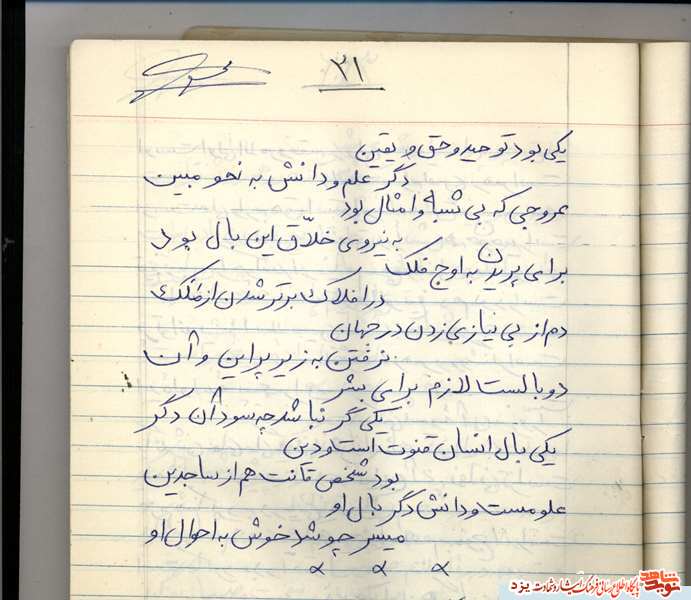 ۲۱
یکی بود توحید و حق و یقین
دگر علم و دانش به نحو مبین
عروجی که بی شباه و امثال بود
به نیروی خلاّق این بال بود
برای پریدن به اوج فلک
در افلاک برتر شدن از ملک
دم از بی نیازی زدن در جهان
نرفتن به زیر پر این و آن
دو بالست لازم برای بشر
یکی گر نباشد چه سود آن دگر
یکی بال انسان قنوت است و دین
بود شخص قانت هم از ساجدین
علومست و دانش دگر بال او
میسر چو شد خوش به احوال او
نوید شاهد
پایگاه اطلاع رسانی فرهنگ ایثار و شهادت یزد